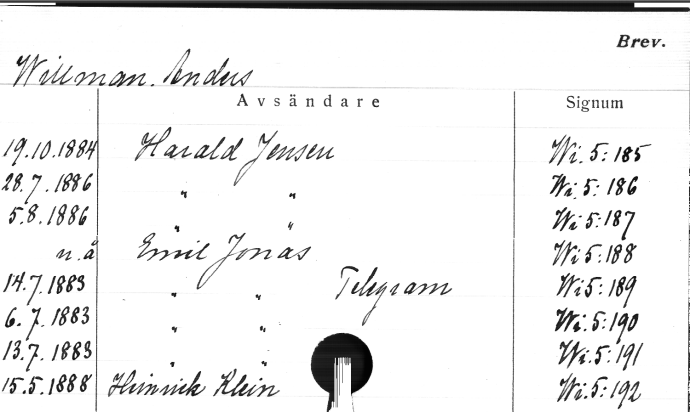 Brev.
Willman. Anders
Avsändare Signum
19.10.1884 Harald Jensen Wi. 5: 185
28.7.1886 " " Wi. 5: 186
5.8.1886 " " Wi 5: 187
n.å Emil Jonas Wi 5: 188
14.7.1883 " " Telegram Wi 5: 189
6.7.1883 " " Wi. 5: 190
13.7.1883 " " Wi. 5: 191
15.5.1888 Heinrick Klein Wi. 5: 192